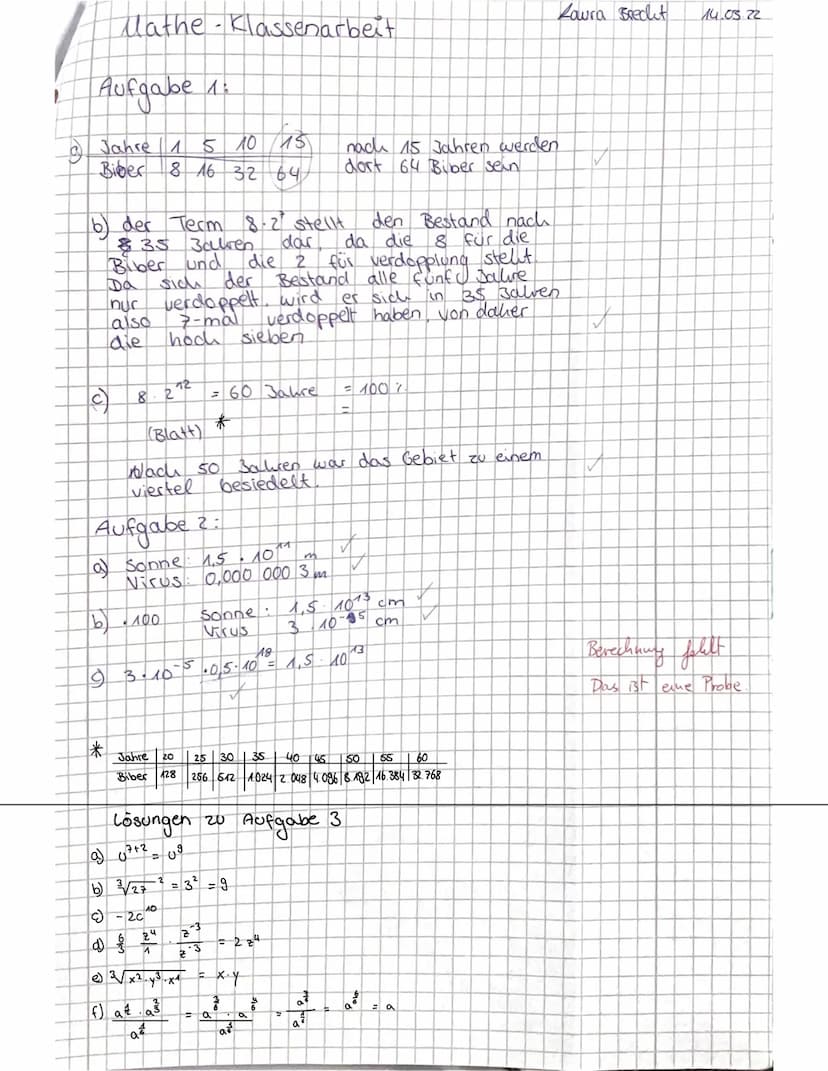 Mathe - Klassenarbeit
Laura 14.03.22
Aufgabe 1:
a) Jahre | 1 5 10 15
Biber | 8 16 32 64
nach 15 Jahren werden
dort 64 Biber sein ✓
b) der Term 8·2⁷ stellt den Bestand nach
35 Jahren dar, da die 8 für die
Biber und die 2 für verdopplung stellt.
Da sich der Bestand alle fünf Jahre
nur verdoppelt, wird er sich in 35 Jahren
also 7-mal verdoppelt haben, von daher
die hoch sieben ✓
c) 8 · 2¹² = 60 Jahre = 100 %
=
(Blatt) *
Nach 50 Jahren war das Gebiet zu einem
viertel besiedelt. ✓
Aufgabe 2:
a) Sonne: 1,5 · 10¹¹ m ✓
Virus: 0,000 000 3 m ✓
b) ·100 Sonne: 1,5 · 10¹³ cm ✓
Virus 3 · 10⁻⁵ cm ✓
c) 3 · 10⁻⁵ · 0,5 · 10¹⁸ = 1,5 · 10¹³ ✓
Berechnung fehlt
Das ist eine Probe
* Jahre | 20 | 25 | 30 | 35 | 40 | 45 | 50 | 55 | 60
Biber | 128 | 256 | 512 | 1024 | 2 048 | 4 096 | 8 192 | 16 384 | 32 768
Lösungen zu Aufgabe 3
a) u⁷⁺² = u⁹
b) ∛27² = 3² = 9
c) -2c¹⁰
d) 6/3 · z⁴/1 · z⁻³/z⁻³ = 2z⁴
e) ∛(x² · y³ · x¹) = x·y